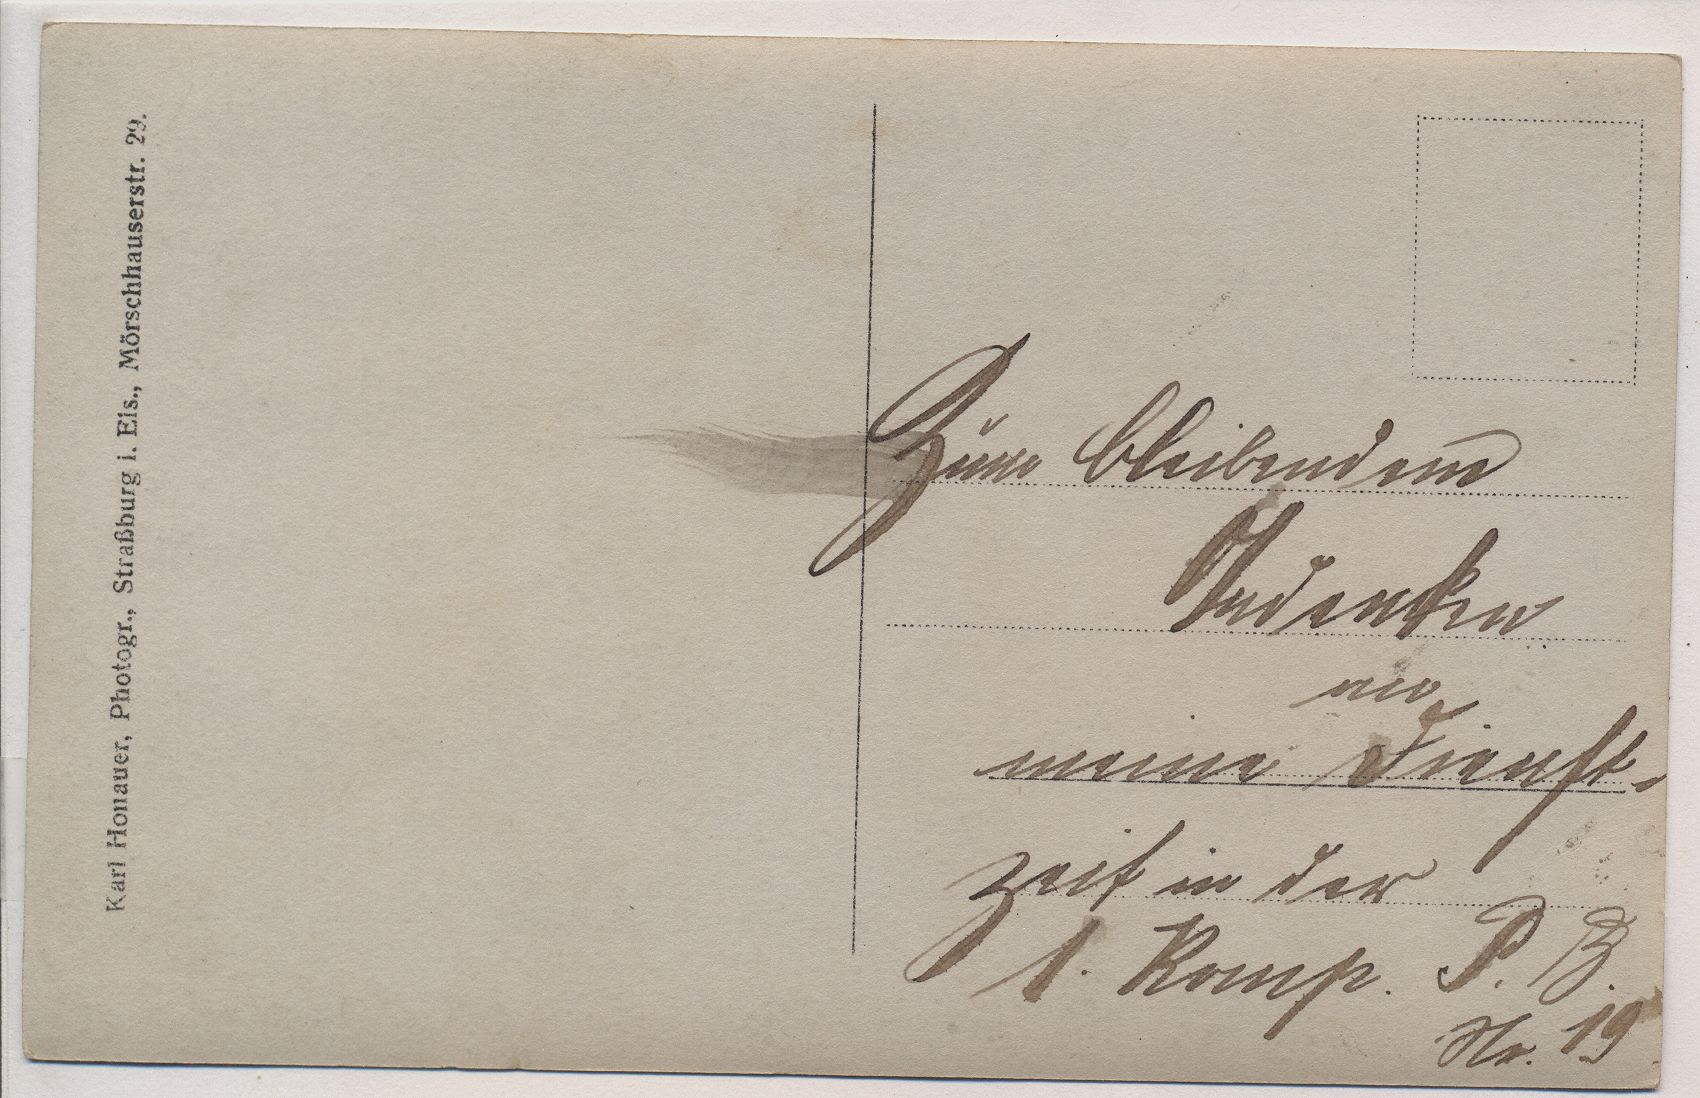 Karl Honauer, Photogr., Straßburg i. Els., Mörschhauserstr. 29.
Zum bleibendem
Andenken
an
meine Dienst-
zeit in der
1. Komp. P. B.
Nr. 19